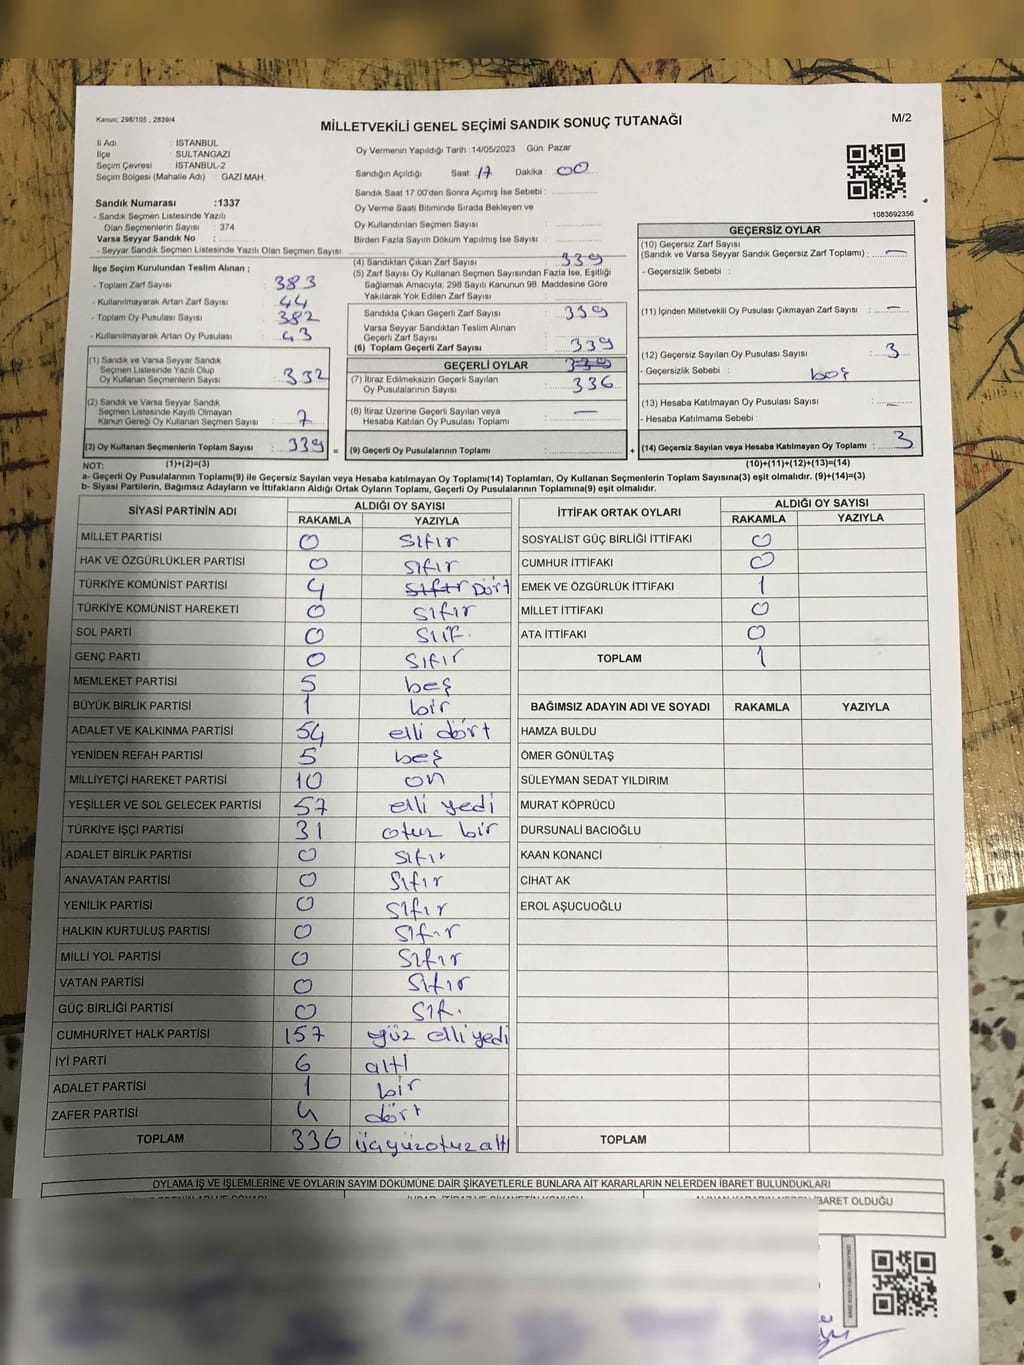 Kanun: 298/105 , 2839/4
MİLLETVEKİLİ GENEL SEÇİMİ SANDIK SONUÇ TUTANAĞI
M/2
İl Adı : İSTANBUL
İlçe : SULTANGAZİ
Seçim Çevresi : İSTANBUL-2
Seçim Bölgesi (Mahalle Adı) : GAZİ MAH
Sandık Numarası :1337
- Sandık Seçmen Listesinde Yazılı
Olan Seçmenlerin Sayısı : 374
Varsa Seyyar Sandık No :
- Seyyar Sandık Seçmen Listesinde Yazılı Olan Seçmen Sayısı :
Oy Vermenin Yapıldığı Tarih :14/05/2023 Gün: Pazar
Sandığın Açıldığı Saat : 17 Dakika : 00
Sandık Saat 17:00'den Sonra Açımış İse Sebebi :
Oy Verme Saati Bitiminde Sırada Bekleyen ve
Oy Kullandırılan Seçmen Sayısı :
Birden Fazla Sayım Döküm Yapılmış İse Sayısı :
1083692356
İlçe Seçim Kurulundan Teslim Alınan ;
- Toplam Zarf Sayısı : 383
- Kullanılmayarak Artan Zarf Sayısı : 44
- Toplam Oy Pusulası Sayısı : 382
- Kullanılmayarak Artan Oy Pusulası : 43
(1) Sandık ve Varsa Seyyar Sandık
Seçmen Listesinde Yazılı Olup
Oy Kullanan Seçmenlerin Sayısı : 332
(2) Sandık ve Varsa Seyyar Sandık
Seçmen Listesinde Kayıtlı Olmayan
Kanun Gereği Oy Kullanan Seçmen Sayısı : 7
(3) Oy Kullanan Seçmenlerin Toplam Sayısı : 339
(1)+(2)=(3)
(4) Sandıktan Çıkan Zarf Sayısı : 339
(5) Zarf Sayısı Oy Kullanan Seçmen Sayısından Fazla İse, Eşitliği
Sağlamak Amacıyla, 298 Sayılı Kanunun 98. Maddesine Göre
Yakılarak Yok Edilen Zarf Sayısı :
Sandıkta Çıkan Geçerli Zarf Sayısı : 339
Varsa Seyyar Sandıktan Teslim Alınan
Geçerli Zarf Sayısı :
(6) Toplam Geçerli Zarf Sayısı : 339
GEÇERLİ OYLAR 339
(7) İtiraz Edilmeksizin Geçerli Sayılan
Oy Pusulalarının Sayısı : 336
(8) İtiraz Üzerine Geçerli Sayılan veya
Hesaba Katılan Oy Pusulası Toplamı : —
= (9) Geçerli Oy Pusulalarının Toplamı : +
GEÇERSİZ OYLAR
(10) Geçersiz Zarf Sayısı
(Sandık ve Varsa Seyyar Sandık Geçersiz Zarf Toplamı) : —
- Geçersizlik Sebebi :
(11) İçinden Milletvekili Oy Pusulası Çıkmayan Zarf Sayısı : —
(12) Geçersiz Sayılan Oy Pusulası Sayısı : 3
- Geçersizlik Sebebi : boş
(13) Hesaba Katılmayan Oy Pusulası Sayısı : —
- Hesaba Katılmama Sebebi :
(14) Geçersiz Sayılan veya Hesaba Katılmayan Oy Toplamı : 3
(10)+(11)+(12)+(13)=(14)
NOT:
a- Geçerli Oy Pusulalarının Toplamı(9) ile Geçersiz Sayılan veya Hesaba katılmayan Oy Toplamı(14) Toplamları, Oy Kullanan Seçmenlerin Toplam Sayısına(3) eşit olmalıdır. (9)+(14)=(3)
b- Siyasi Partilerin, Bağımsız Adayların ve İttifakların Aldığı Ortak Oyların Toplamı, Geçerli Oy Pusulalarının Toplamına(9) eşit olmalıdır.
SİYASİ PARTİNİN ADI ALDIĞI OY SAYISI
RAKAMLA YAZIYLA
MİLLET PARTİSİ 0 sıfır
HAK VE ÖZGÜRLÜKLER PARTİSİ 0 sıfır
TÜRKİYE KOMÜNİST PARTİSİ 4 sıfır Dört
TÜRKİYE KOMÜNİST HAREKETİ 0 sıfır
SOL PARTİ 0 sıf.
GENÇ PARTİ 0 sıfır
MEMLEKET PARTİSİ 5 beş
BÜYÜK BİRLİK PARTİSİ 1 bir
ADALET VE KALKINMA PARTİSİ 54 elli dört
YENİDEN REFAH PARTİSİ 5 beş
MİLLİYETÇİ HAREKET PARTİSİ 10 on
YEŞİLLER VE SOL GELECEK PARTİSİ 57 elli yedi
TÜRKİYE İŞÇİ PARTİSİ 31 otuz bir
ADALET BİRLİK PARTİSİ 0 sıfır
ANAVATAN PARTİSİ 0 sıfır
YENİLİK PARTİSİ 0 sıfır
HALKIN KURTULUŞ PARTİSİ 0 sıfır
MİLLİ YOL PARTİSİ 0 sıfır
VATAN PARTİSİ 0 sıfır
GÜÇ BİRLİĞİ PARTİSİ 0 sıf.
CUMHURİYET HALK PARTİSİ 157 yüz elli yedi
İYİ PARTİ 6 altı
ADALET PARTİSİ 1 bir
ZAFER PARTİSİ 4 dört
TOPLAM 336 üçyüzotuzaltı
İTTİFAK ORTAK OYLARI ALDIĞI OY SAYISI
RAKAMLA YAZIYLA
SOSYALİST GÜÇ BİRLİĞİ İTTİFAKI 0
CUMHUR İTTİFAKI 0
EMEK VE ÖZGÜRLÜK İTTİFAKI 1
MİLLET İTTİFAKI 0
ATA İTTİFAKI 0
TOPLAM 1
BAĞIMSIZ ADAYIN ADI VE SOYADI RAKAMLA YAZIYLA
HAMZA BULDU
ÖMER GÖNÜLTAŞ
SÜLEYMAN SEDAT YILDIRIM
MURAT KÖPRÜCÜ
DURSUNALİ BACIOĞLU
KAAN KONANCİ
CİHAT AK
EROL AŞUCUOĞLU
TOPLAM
OYLAMA İŞ VE İŞLEMLERİNE VE OYLARIN SAYIM DÖKÜMÜNE DAİR ŞİKAYETLERLE BUNLARA AİT KARARLARIN NELERDEN İBARET BULUNDUKLARI
İBARET OLDUĞU